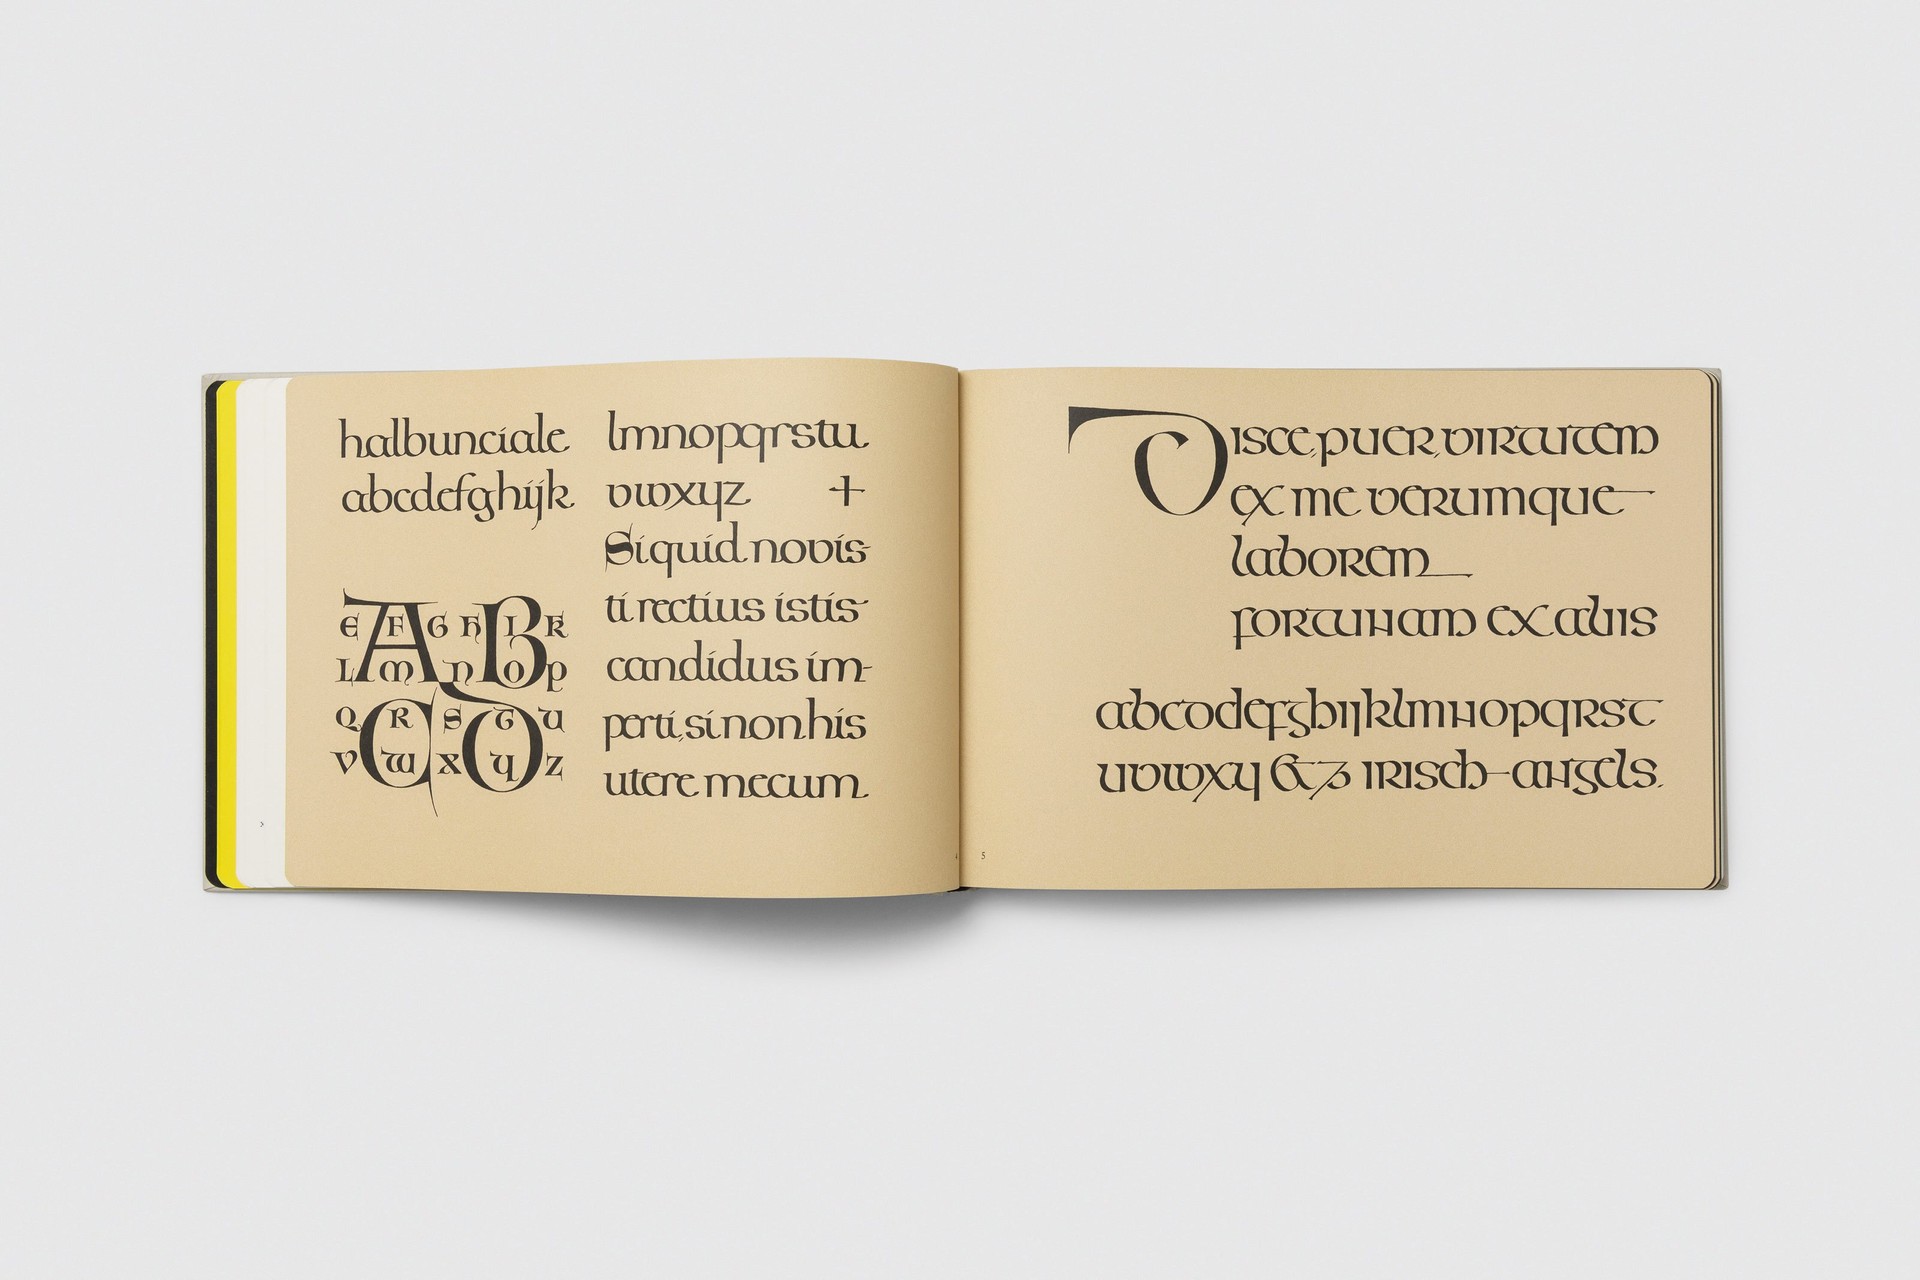 halbunciale
abcdefghijk
A B C D
E F G H I K
L M N O P
Q R S T U
V W X Y Z
lmnopqrstu
vwxyz +
Si quid novis
ti rectius istis
candidus im-
perti, si non his
utere mecum.
Disce, puer, virtutem
ex me verumque
laborem
fortunam ex aliis
abcdefghijklmnopqrst
uvwxy & z irisch-angels.
5